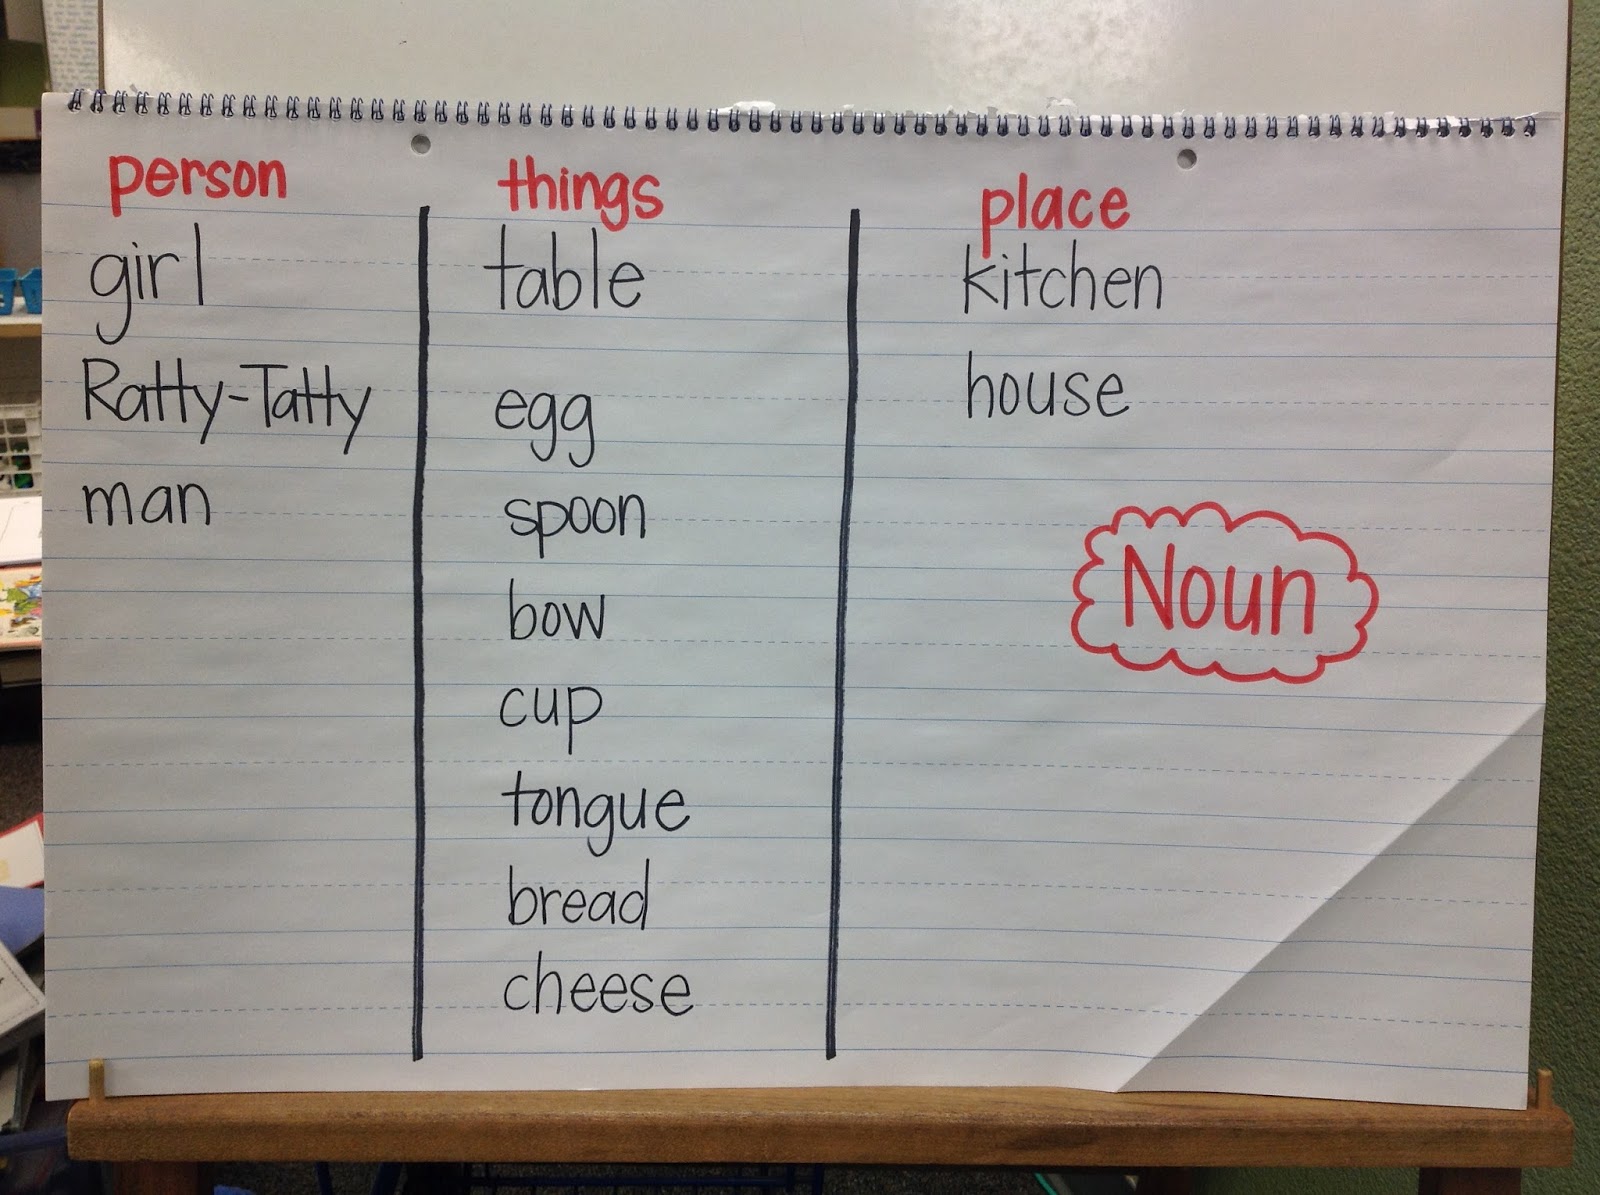 person
girl
Ratty-Tatty
man
things
table
egg
spoon
bow
cup
tongue
bread
cheese
place
kitchen
house
Noun